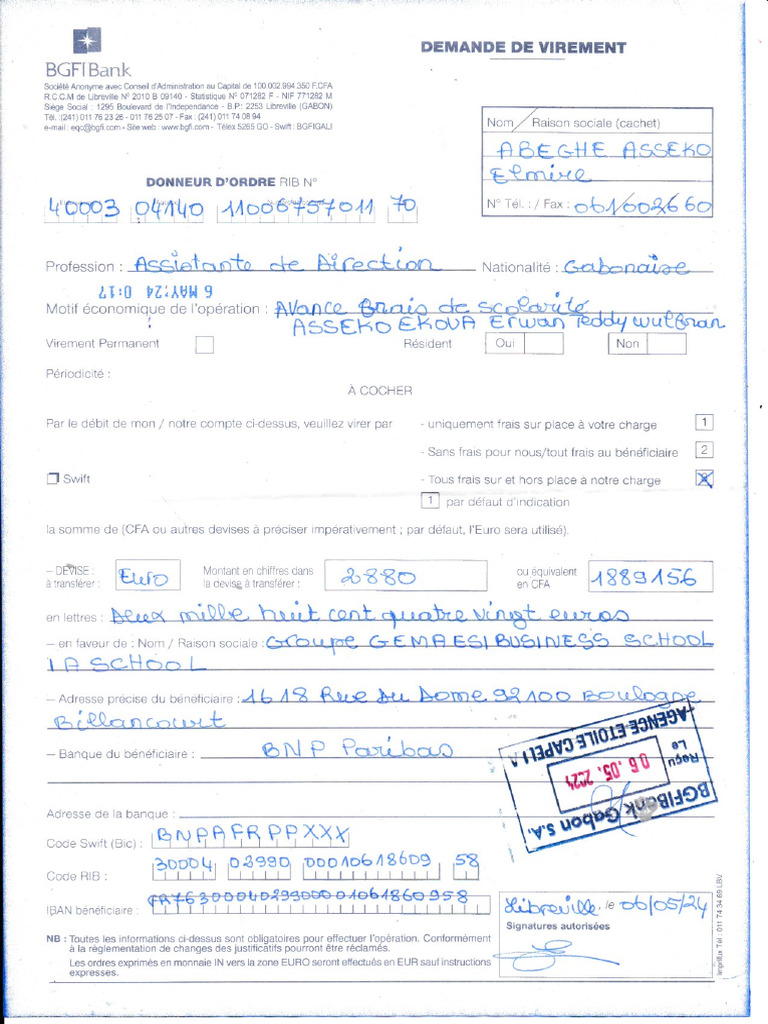 BGFIBank
DEMANDE DE VIREMENT
Société Anonyme avec Conseil d'Administration au Capital de 100.002.994 350 F.CFA
R.C.C.M de Libreville N° 2010 B 09140 - Statistique N° 071282 F - NIF 771282 M
Siège Social : 1295 Boulevard de l'Independance - B.P.: 2253 Libreville (GABON)
Tél. :(241) 011 76 23 26 - 011 76 25 07 - Fax : (241) 011 74 08 94
e-mail : eqc@bgfi.com - Site web : www.bgfi.com - Télex 5265 GO - Swift : BGFIGALI
Nom / Raison sociale (cachet)
ABEGHE ASSEKO
Elmire
N° Tél. : / Fax : 061/002660
DONNEUR D'ORDRE RIB N°
40003 04140 11006757011 70
Profession : Assistante de Direction Nationalité : Gabonaise
6 MAY 24 0:17
Motif économique de l'opération : Avance frais de scolarité
ASSEKO EKOUA Erwan Teddy Wulfran
Virement Permanent Résident Oui Non
Périodicité :
À COCHER
Par le débit de mon / notre compte ci-dessus, veuillez virer par - uniquement frais sur place à votre charge 1
- Sans frais pour nous/tout frais au bénéficiaire 2
Swift - Tous frais sur et hors place à notre charge
1 par défaut d'indication
la somme de (CFA ou autres devises à préciser impérativement ; par défaut, l'Euro sera utilisé).
– DEVISE : à transférer : Euro Montant en chiffres dans la devise à transférer : 2880 ou équivalent en CFA 1889156
en lettres : Deux mille huit cent quatre vingt euros
– en faveur de : Nom / Raison sociale : Groupe GEMA ESI BUSINESS SCHOOL
IA SCHOOL
– Adresse précise du bénéficiaire : 1618 Rue Du Dome 92100 Boulogne
Billancourt
– Banque du bénéficiaire : BNP Paribas
BGFIBank Gabon S.A.
Reçu Le 06.05.2024
Adresse de la banque :
Code Swift (Bic) : BNPAFRPPXXX
Code RIB : 30004 02990 00010618609 58
IBAN bénéficiaire : FR7630004029900001061860958
Libreville le 06/05/24
Signatures autorisées
NB : Toutes les informations ci-dessus sont obligatoires pour effectuer l'opération. Conformément
à la règlementation de changes des justificatifs pourront être réclamés.
Les ordres exprimés en monnaie IN vers la zone EURO seront effectués en EUR sauf instructions
expresses.